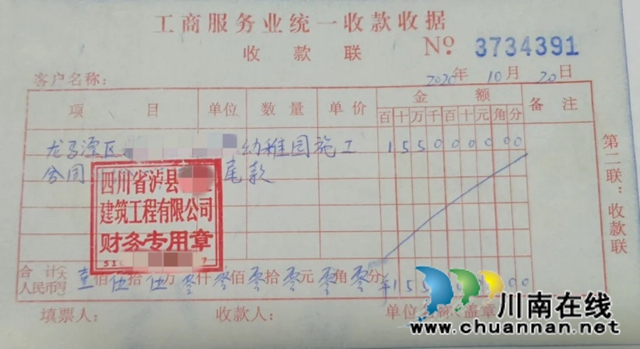 工商服务业统一收款收据
收款联 № 3734391
客户名称: 2020年10月20日
项目 单位 数量 单价 金额 备注
百十万千百十元角分
龙马潭区 幼稚园施工 155000000
合同 尾款
四川省泸县
建筑工程有限公司
财务专用章
合计 人民币 壹佰伍拾伍万零仟零佰零拾零元零角零分 ¥155
填票人: 收款人: 单位名称 盖章
第二联:收款联
川南在线
www.chuannan.net